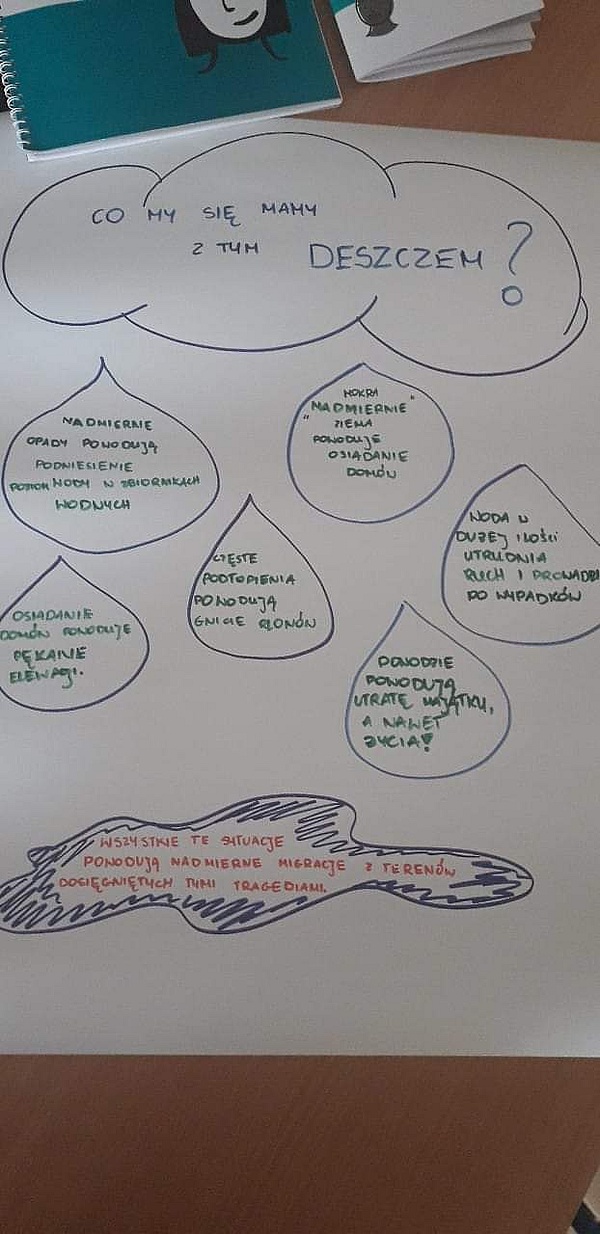 CO MY SIĘ MAMY
Z TYM DESZCZEM?
NADMIERNE
OPADY POWODUJĄ
PODNIESIENIE
POZIOM WODY W ZBIORNIKACH
WODNYCH
MOKRA
"NADMIERNIE"
ZIEMA
POWODUJE
OSIADANIE
DOMÓW
WODA W
DUŻEJ ILOŚCI
UTRUDNIA
RUCH I PROWADZI
DO WYPADKÓW
CZĘSTE
PODTOPIENIA
POWODUJĄ
GNICIE PLONÓW
OSIADANIE
DOMÓW POWODUJE
PĘKANIE
ELEWACJI.
POWODZIE
POWODUJĄ
UTRATĘ MAJĄTKU,
A NAWET
ŻYCIA!
WSZYSTKIE TE SYTUACJE
POWODUJĄ NADMIERNE MIGRACJE Z TERENÓW
DOSIĘGNIĘTYCH TYMI TRAGEDIAMI.